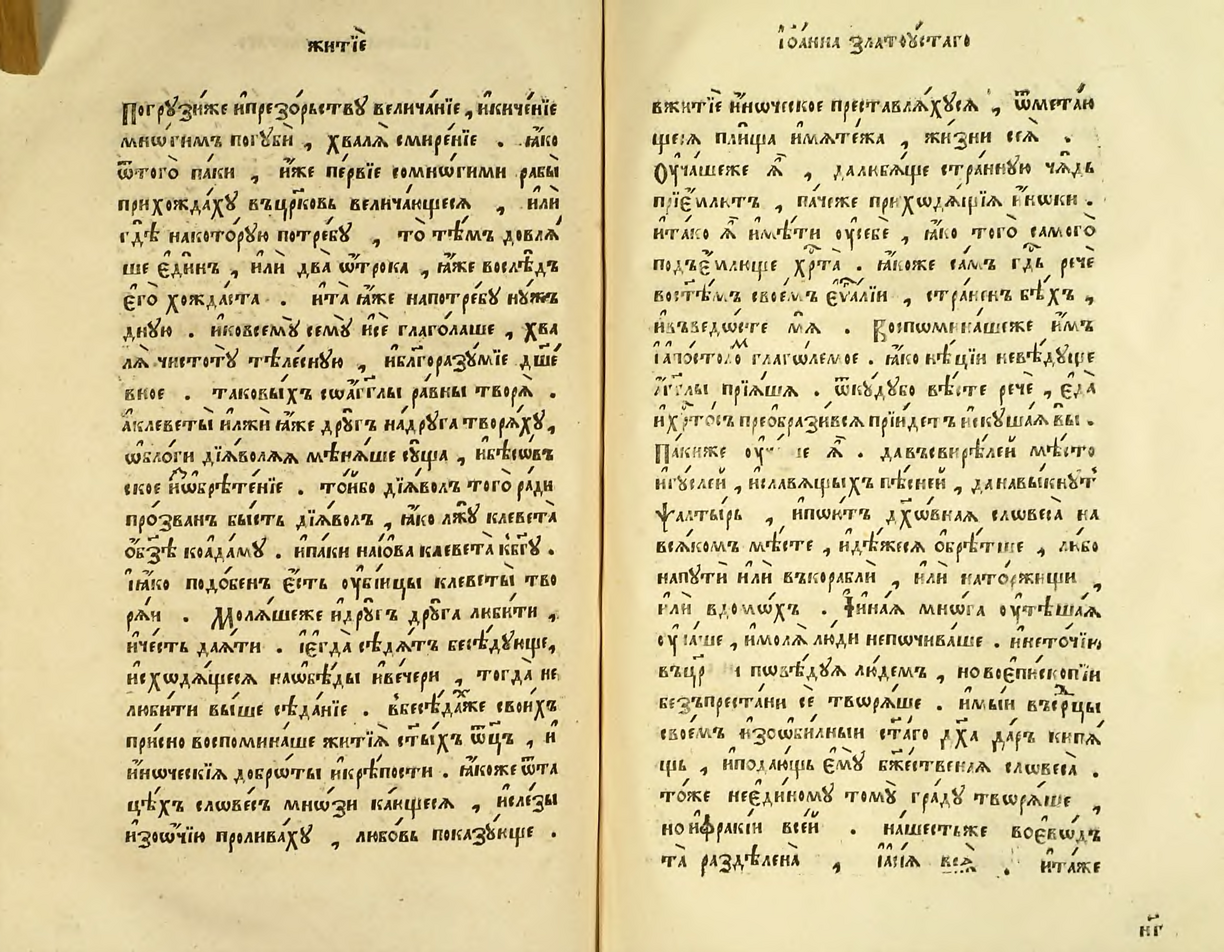 житїѐ
Погрꙋзи́же и҆презо́рьствꙋ велича́нїе , и҆киче́нїе
мнѡ́гимъ погꙋбѝ , хвалѧ̀ смире́нїе . ꙗ҆́ко
ѿтого̀ па́ки , и҆́же пе́рвїе сомнѡ́гими рабы̀
прихожда́хꙋ въцр҃ковь велича́ющесѧ , и҆лѝ
гдѣ̀ накото́рꙋю потре́бꙋ , то̀ тѣ́мъ довлѧ́
ше є҆ди́нъ , и҆лѝ два̀ ѿ́трока , ꙗ҆́же вослѣ́дъ
є҆гѡ̀ хожда́ста . и҆та̀ ꙗ҆́же напотре́бꙋ нꙋ́ж
днꙋю . и҆ковсемꙋ̀ семꙋ̀ и҆сѐ глаго́лаше , хва
лѧ̀ чистотꙋ̀ тѣле́снꙋю , и҆бл҃горазꙋ́мїе дш҃е́
вное . таковы́хъ соа҆́гг҃лы ра́вны творѧ̀ .
а҆клеветы̀ и҆лжѝ ꙗ҆́же дрꙋ́гъ на́дрꙋга творѧ́хꙋ ,
ѡ҆бло́ги дїѧ́волѧѧ мѣнѧ́ше сꙋ́ща , и҆бѣсѡ́в
ское и҆ѡ҆брѣте́нїе . то́йбо дїѧ́волъ того̀ ра́ди
про́званъ бы́сть дїѧ́волъ , ꙗ҆́ко лжꙋ̀ клевета̀
ѡ҆бз҃ѣ коа҆да́мꙋ . и҆па́ки наі҆́ова клевета̀ кбг҃ꙋ .
і҆ꙗ҆́ко подо́бенъ є҆́сть ᲂу҆бі́йцы клеветы̀ тво
рѧ́и . Молѧ́шеже и҆дрꙋ́гъ дрꙋ́га люби́ти ,
и҆че́сть даѧ́ти . і҆є҆гда̀ сѣдѧ́тъ бесѣ́дꙋюще ,
и҆сходѧ́щесѧ наѡ҆бѣ́ды и҆ве́чери , тогда̀ не
люби́ти вы́ше сѣда́нїе . вбесѣ́дахже свои́хъ
при́сно воспомина́ше житїѧ̀ ст҃ы́хъ ѻ҆ц҃ъ , и҆
и҆́ноческїѧ добро́ты и҆крѣ́пости . ꙗ҆́коже ѿта
цѣ́хъ слѡве́съ мнѡ́зи ка́ющесѧ , и҆сле́зы
и҆зо́чїю пролива́хꙋ , любо́вь показꙋ́юще .
і҆ѡа́нна златоꙋ́стаго
вжитїѐ и҆́ноческое преставлѧ́хꙋсѧ , ѿмета́ю
щесѧ пли́ща и҆мѧте́жа , жи́зни сеѧ̀ .
Оу҆ча́шеже ѧ҆̀ , далюбѧ́ще стра́ннꙋю чѧ́дь
прїе́млютъ , па́чеже приходѧ́щїѧ и҆́ноки .
и҆та́ко ѧ҆̀ и҆мѣ́ти ᲂу҆себѐ , ꙗ҆́ко того̀ самого̀
под̾е́млюще хрⷭ҇та̀ . ꙗ҆́коже са́мъ гдⷭ҇ь речѐ
востѣ́мъ своє́мъ є҆ѵⷢ҇а́лїи , стра́ненъ бѣ́хъ ,
и҆въведо́сте мѧ̀ . Воспомина́шеже и҆́мъ
і҆апо́столомъ глаго́лемое . ꙗ҆́ко нѣ́цїи невѣ́дꙋще
а҆́гг҃лы прїѧ́шѧ . ѿкꙋ́дꙋбо вѣ́сте речѐ , є҆да̀
и҆хрⷭ҇то́съ преѡбрази́всѧ прїи́детъ и҆скꙋша́ѧ вы̀ .
Па́киже ѧ҆̀ . давъсвирѣ́лей мѣ́сто
и҆гꙋ́слей , и҆славѧ́щыхъ пѣ́сней , данавы́кнꙋтъ
Ѱалты́рь , и҆пою́тъ дх҃о́внаѧ словеса̀ на
всѧ́комъ мѣ́сте , и҆дѣ́жесѧ ѡ҆брѣ́тше , лю́бо
напꙋтѝ и҆лѝ въкораблѝ , и҆лѝ нато́ржищи ,
и҆лѝ вдомо́хъ . И҆ина́ѧ мнѡ́га ᲂу҆тѣша́ѧ
ᲂу҆ча́ше , и҆молѧ̀ лю́ди непочива́ше . и҆нето́чїю
повѣ́дꙋѧ лю́демъ , новоє҆пи́скопїи
безъпреста́ни сѐ творѧ́ше . и҆мы́и въсе́рцы
свое́мъ и҆зоби́лныи ст҃а́гѡ дх҃а да́ръ кипѧ́
щь , и҆подаю́щь є҆мꙋ̀ бж҃е́ственаѧ словеса̀ .
то́же неє҆ди́номꙋ томꙋ̀ гра́дꙋ творѧ́ше ,
нои҆ѳраки́и все́й . наше́стьже воє҆во́дъ
та̀ раздѣле́на , і҆а́сїѧ всѧ̀ . и҆та́же
нг҃